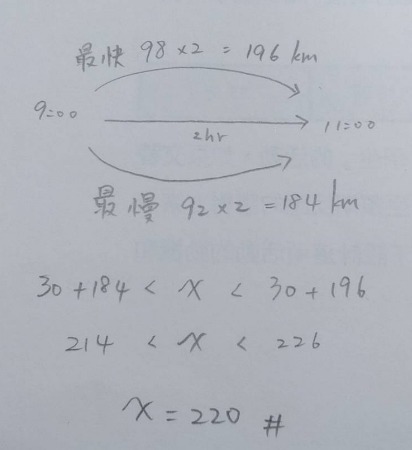 最快 98×2 = 196 km
9:00
2hr
11:00
最慢 92×2 = 184 km
30+184 < x < 30+196
214 < x < 226
x = 220 #